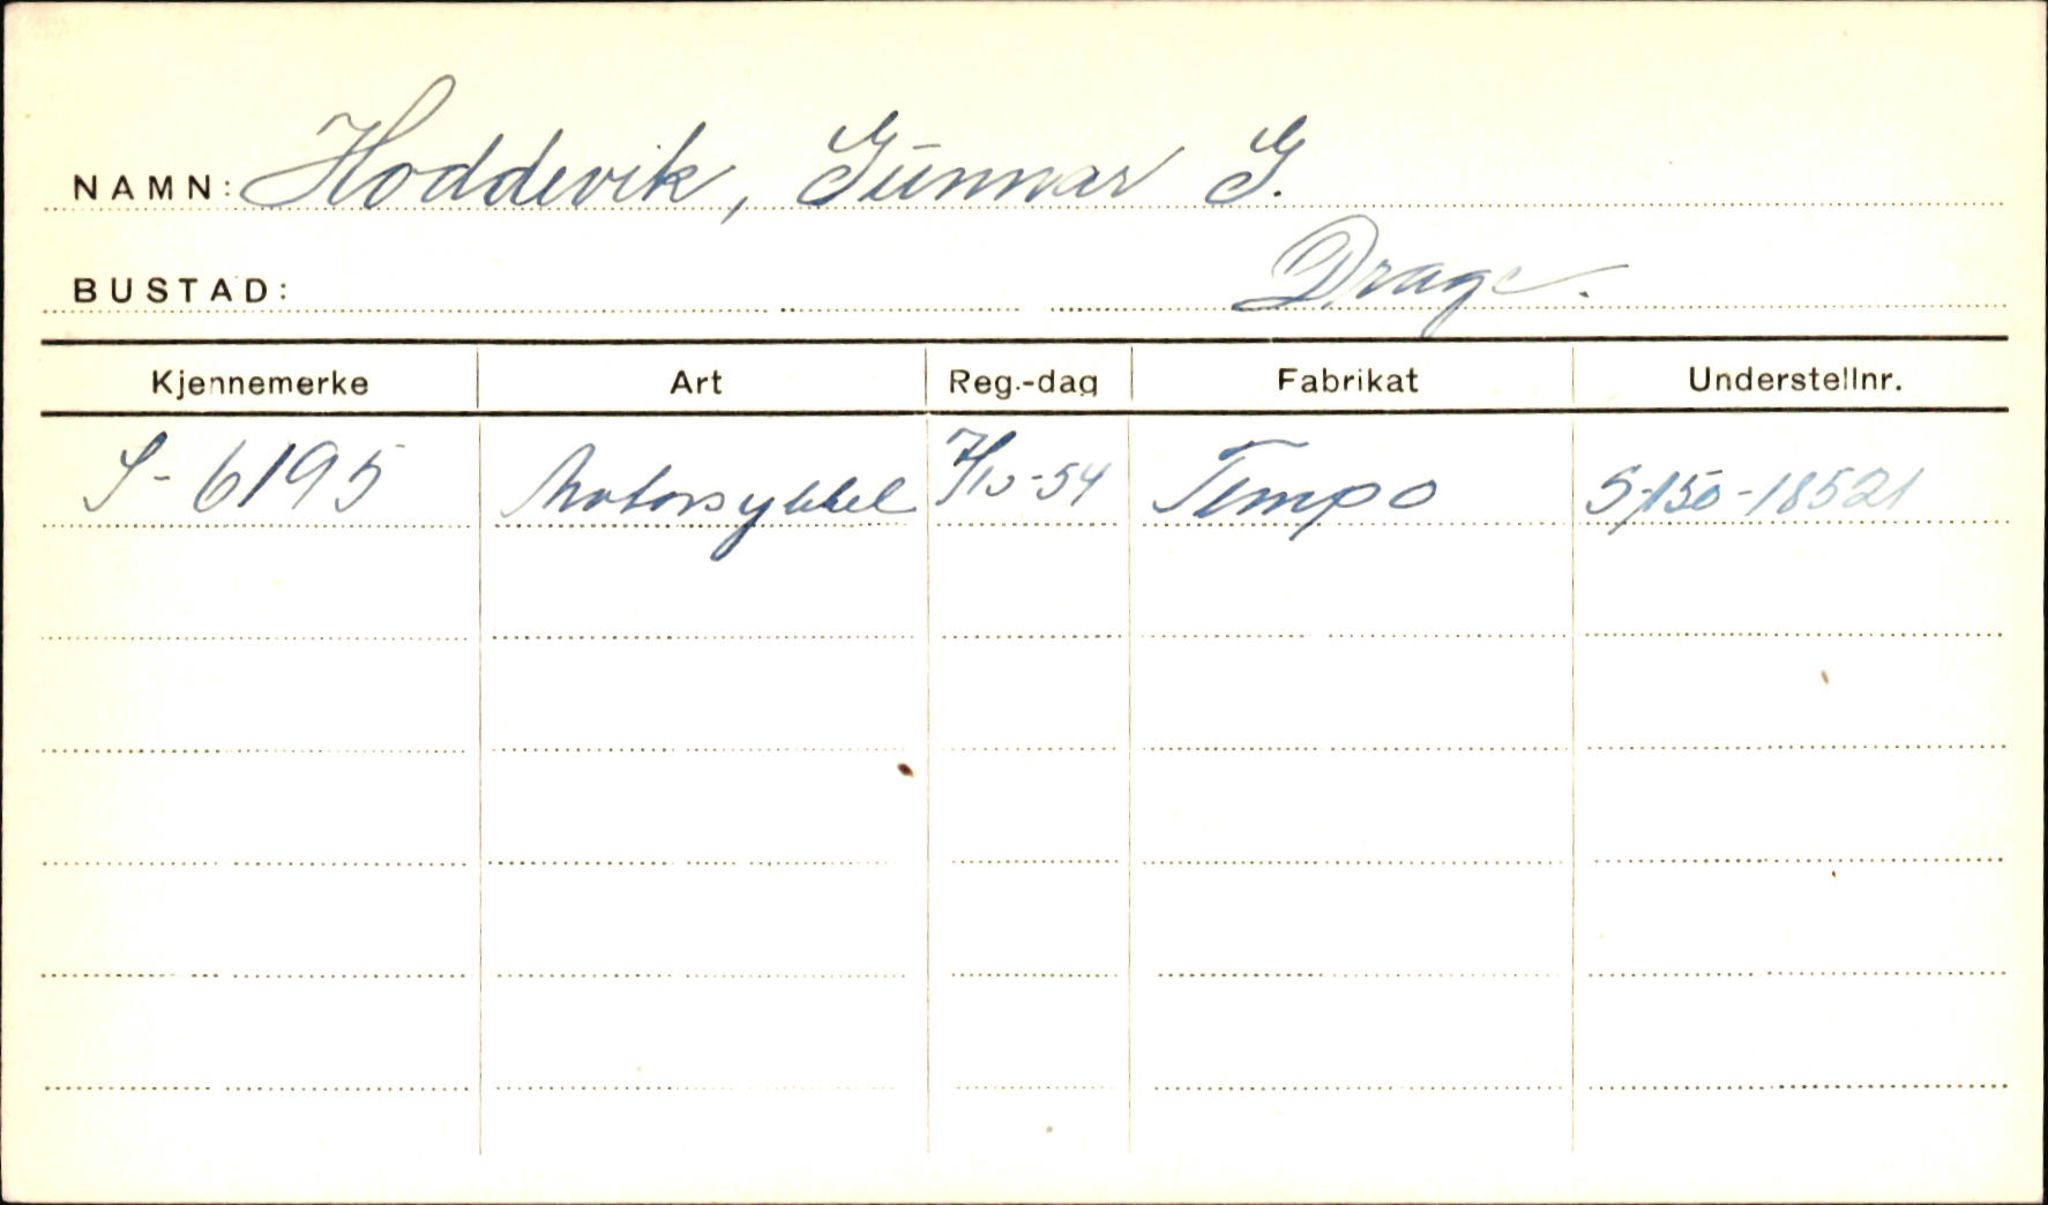 NAMN: Hoddevik, Gunnar G.
BUSTAD: Drage.
Kjennemerke Art Reg.-dag Fabrikat Understellnr.
S-6195 Motorsykkel 7/10-54 Tempo S-150-18521